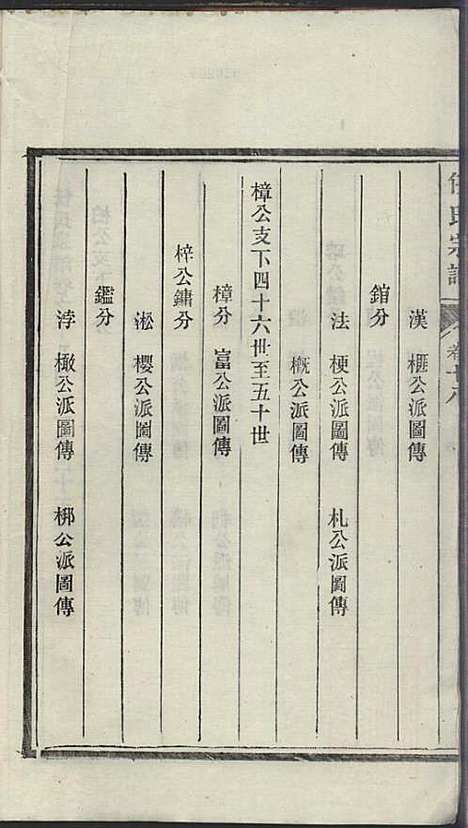 任氏宗譜 卷十八
漢 榧公派圖傳
錧分
法 梗公派圖傳 札公派圖傳
概公派圖傳
樟公支下四十六世至五十世
樟分 富公派圖傳
梓公鏞分
淞 櫻公派圖傳
鑑分
浡 橄公派圖傳 梆公派圖傳